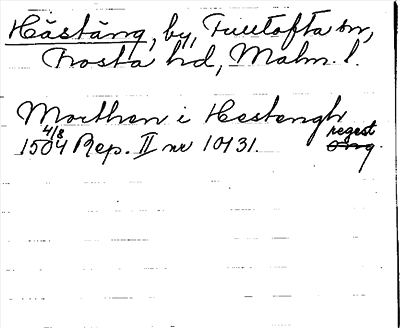 Hästäng, by, Fulltofta sn,
Frosta hd, Malm. l.
Morthen i Hestengh
1504 4/8 Rep. II nr 10131. regest
orig.